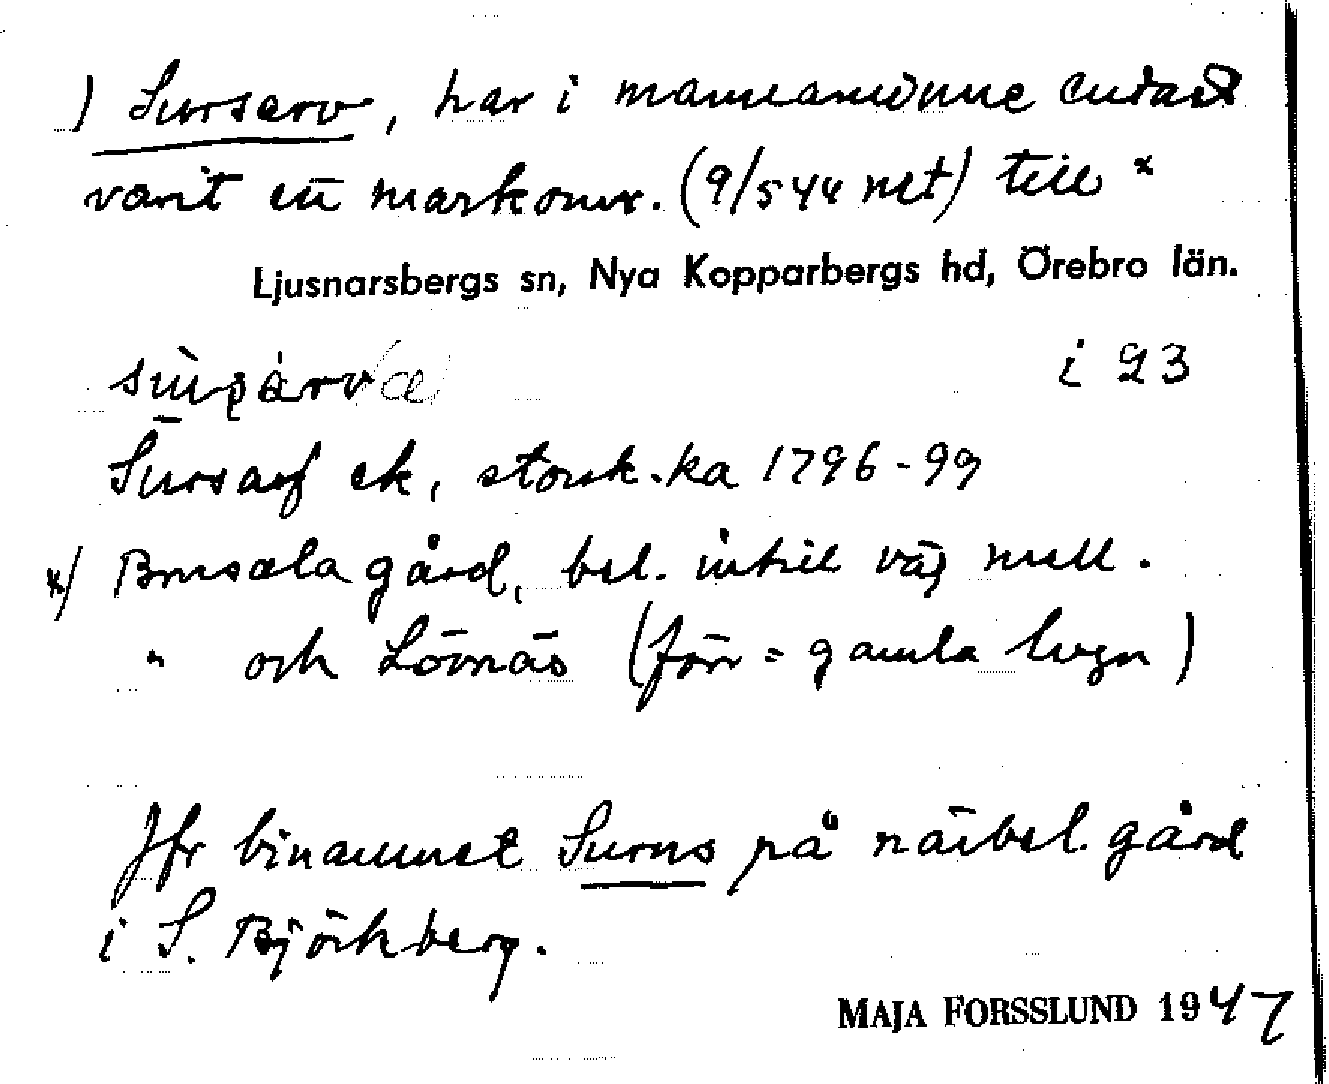 ) Sursarv, har i mannaminne endast
varit ett markomr. (9/544 met) till x
Ljusnarsbergs sn, Nya Kopparbergs hd, Örebro län.
i 23
Sursarf ek, storsk.ka 1796-99
x) Brusala gård, bel. intill väg mell.
" och Lövnäs (förr = gamla byn)
Jfr binamnet Surns på närbel. gård
i S. Björkberg.
MAJA FORSSLUND 1947